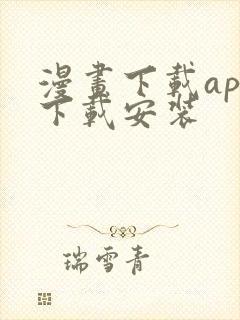 漫畫下載ap
下載安裝
瑞雪青